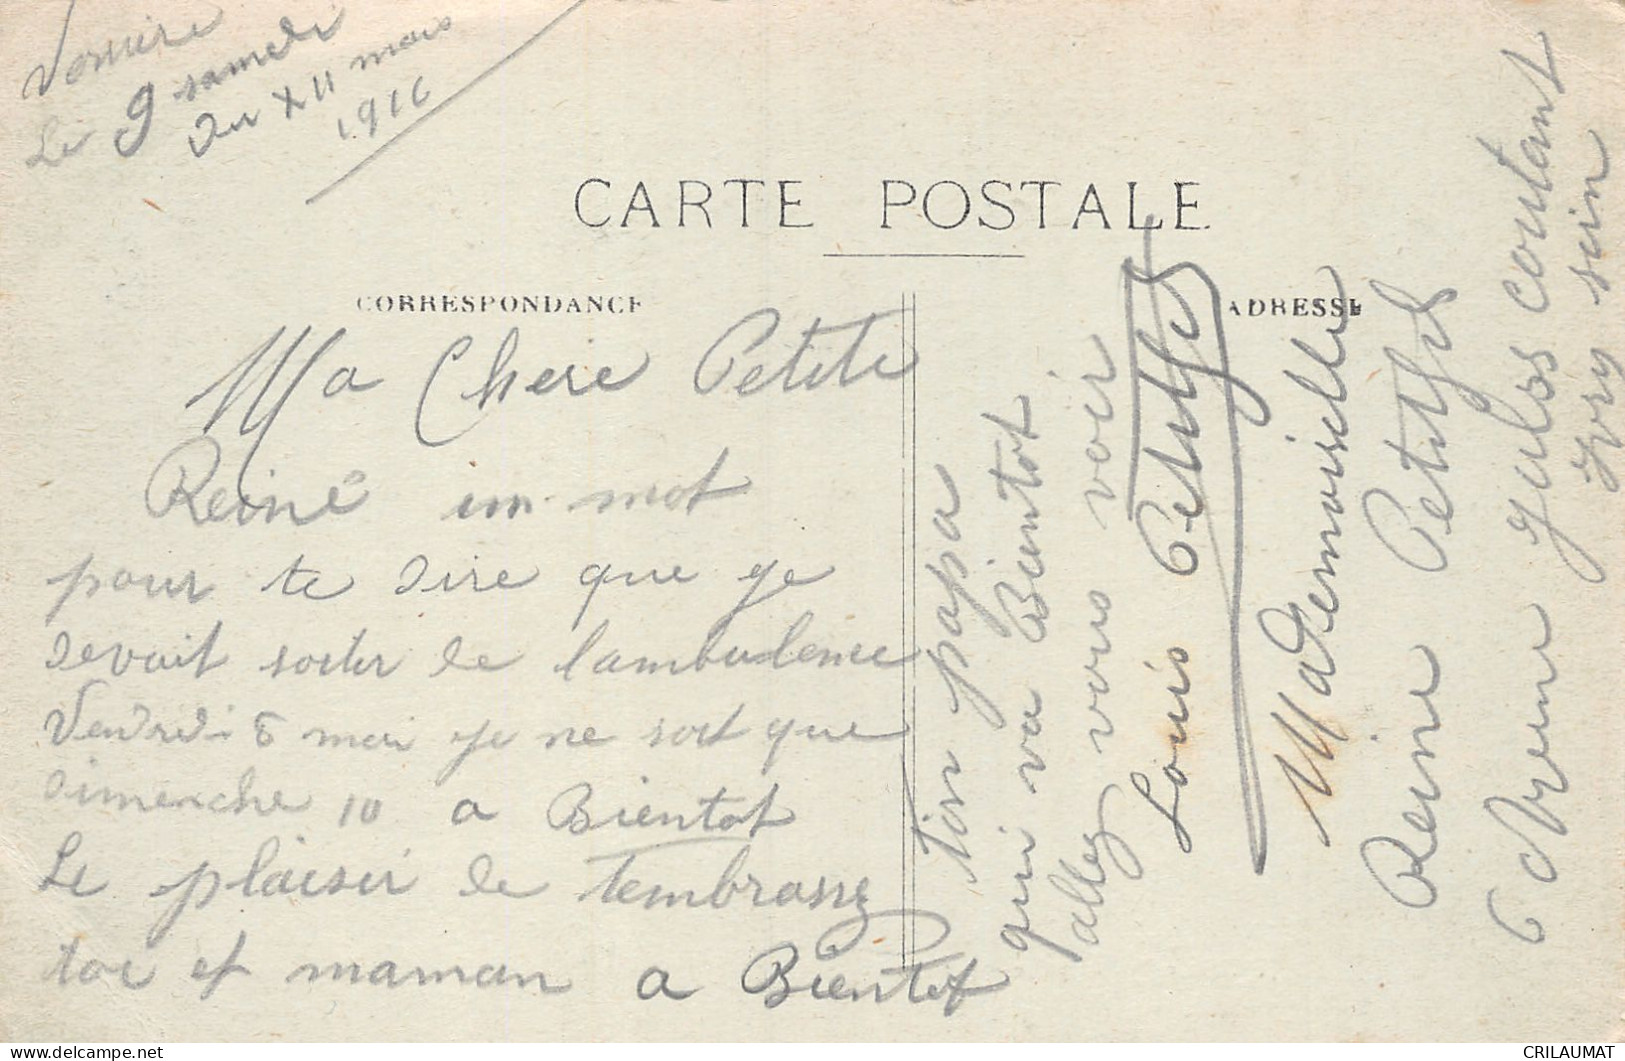 Le 9 samedi
du XII mois
1916
CARTE POSTALE
CORRESPONDANCE
ADRESSE
Ma Chere Petite
Reine un mot
pour te dire que ge
devait sorter de lambulence
Vendredi 8 mai ge ne sort que
dimenche 10 a Bientot
Le plaisir de tembrasse
toi et maman a Bientot
ton papa
qui va Bientot
allez vous voir
Louis Petitfils
Mademoiselle
Reine Petitfils
6 Avenu Jules coutant
Ivry sein
CRILAUMAT